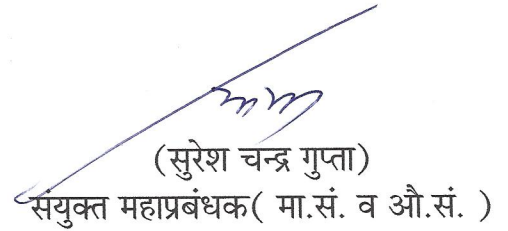 (सुरेश चन्द्र गुप्ता)
संयुक्त महाप्रबंधक( मा.सं. व औ.सं. )